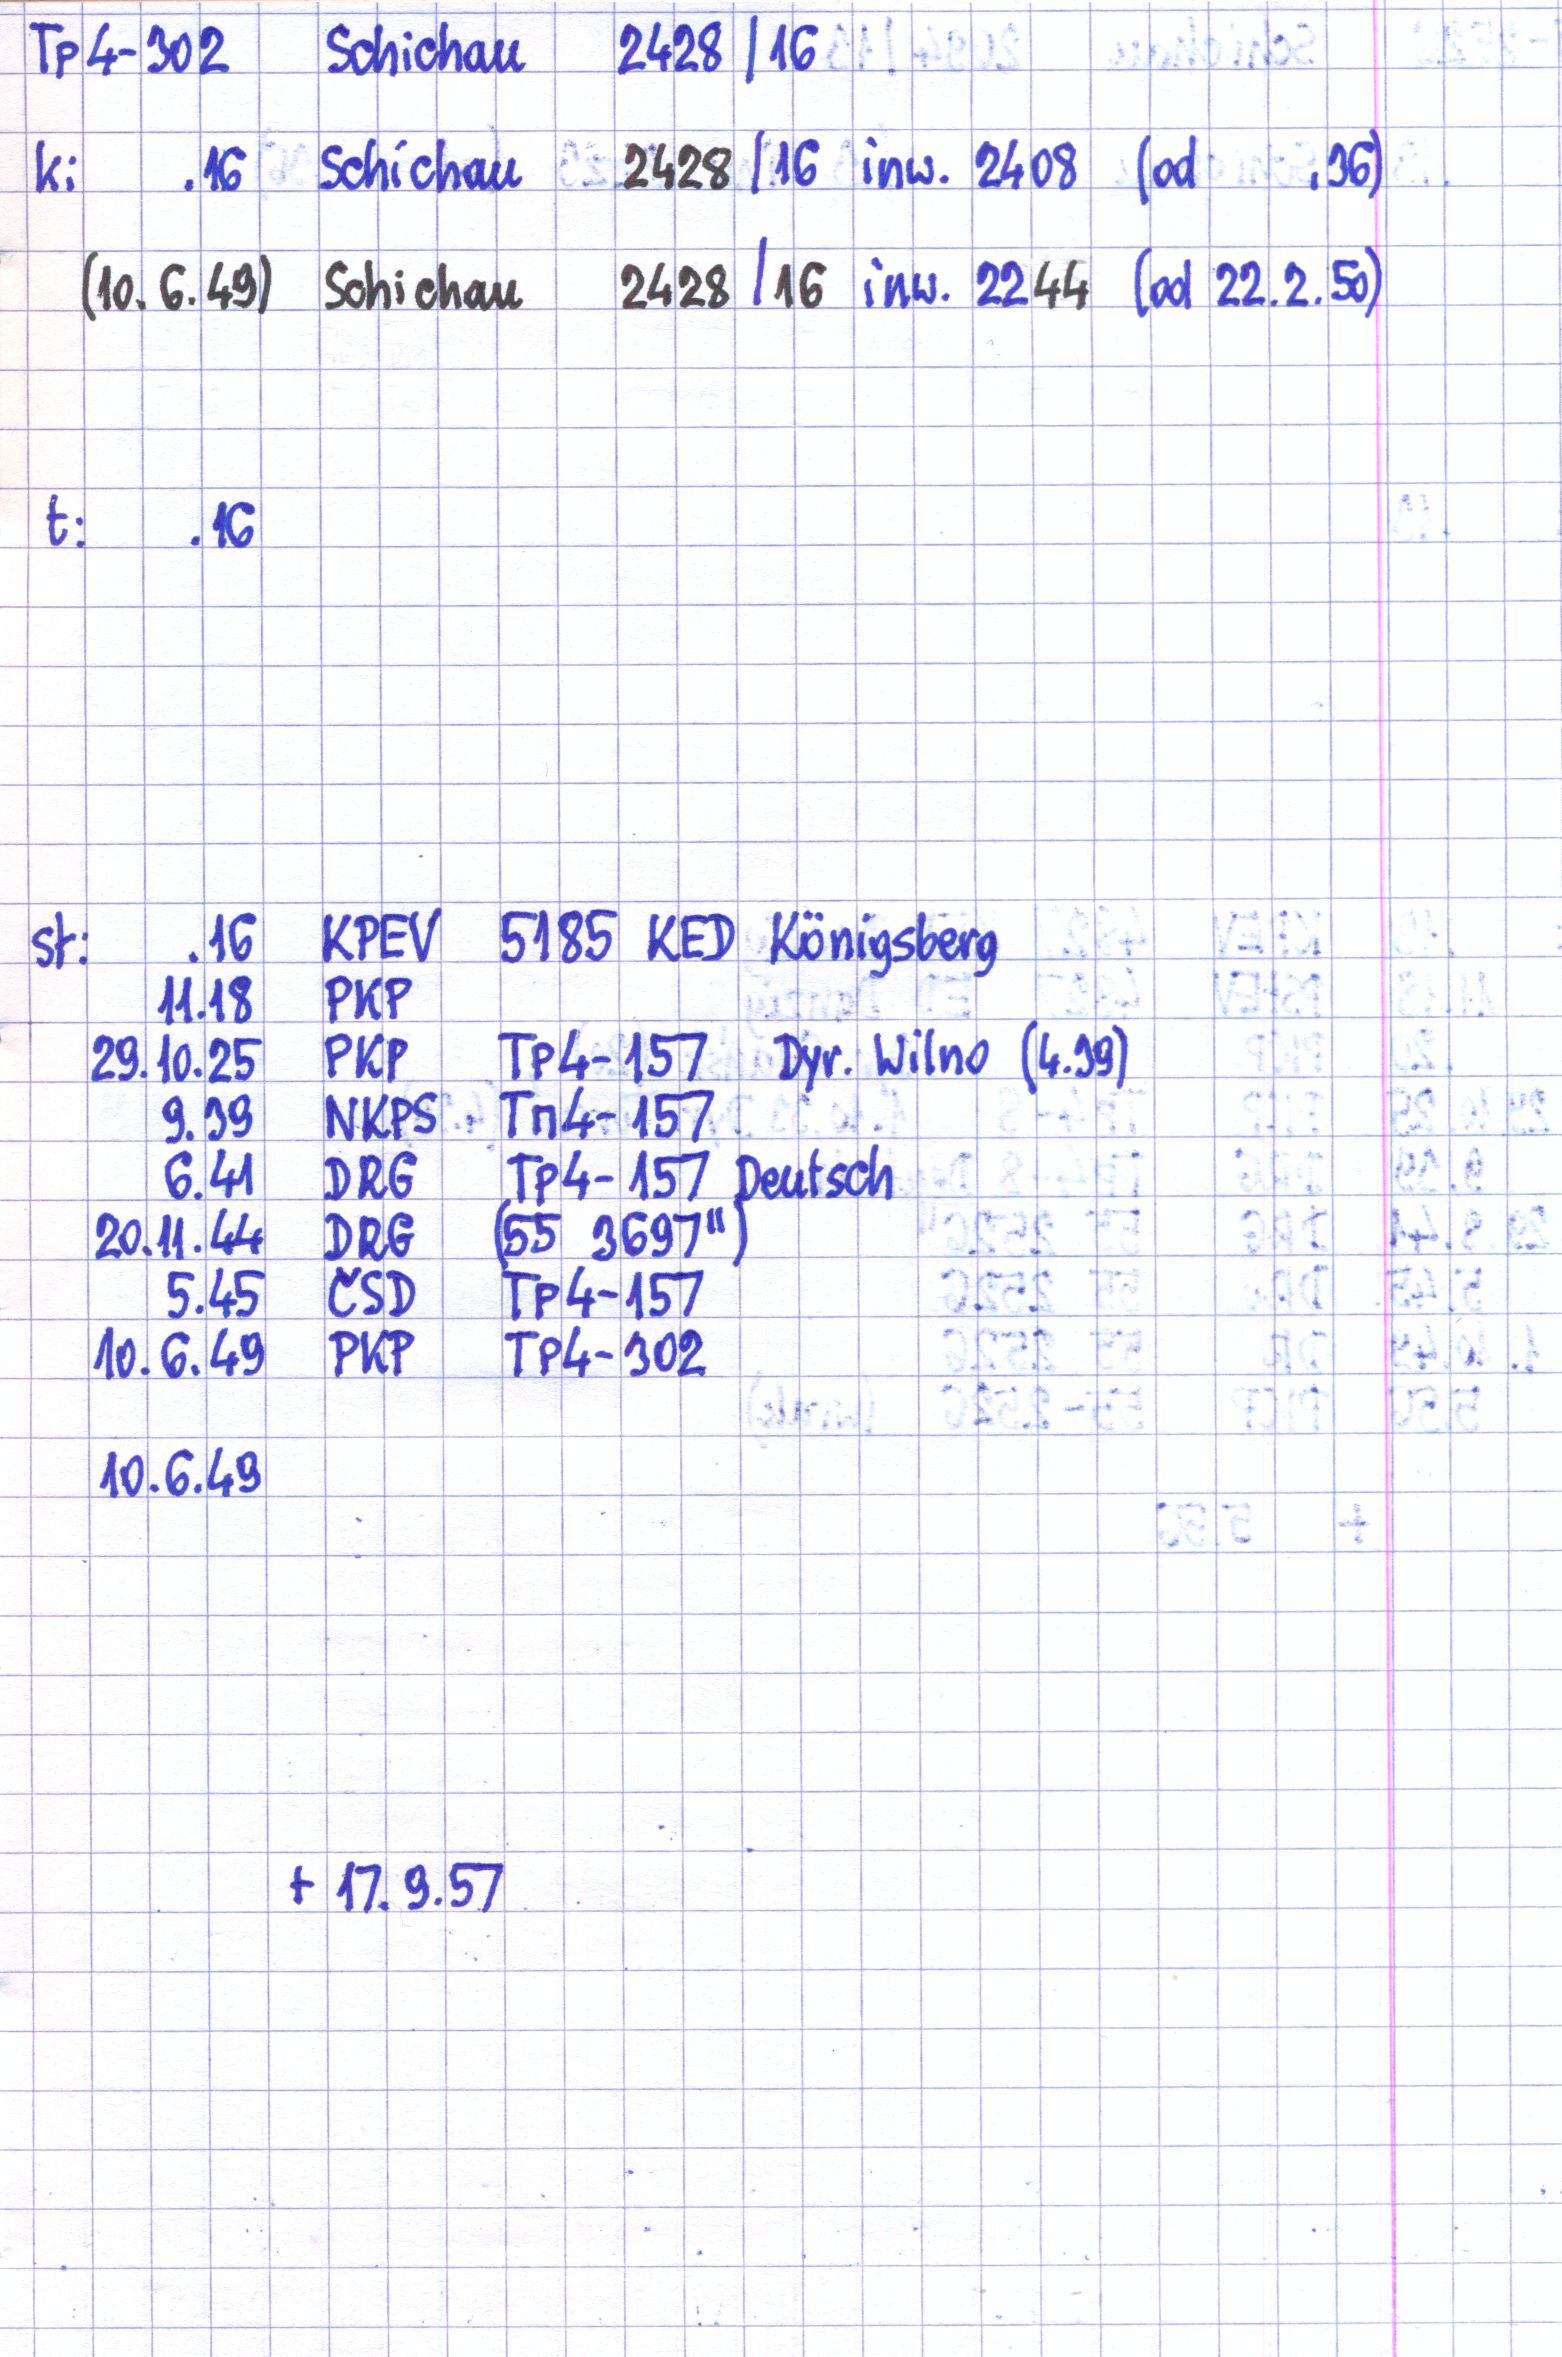 Tp4-302 Schichau 2428/16
k: .16 Schichau 2428/16 inw. 2408 (od .36)
(10.6.49) Schichau 2428/16 inw. 2244 (od 22.2.50)
t: .16
st: .16 KPEV 5185 KED Königsberg
11.18 PKP
29.10.25 PKP Tp4-157 Dyr. Wilno (4.39)
9.39 NKPS Тп4-157
6.41 DRG Tp4-157 Deutsch
20.11.44 DRG (55 3697")
5.45 ČSD Tp4-157
10.6.49 PKP Tp4-302
10.6.49
+ 17.9.57